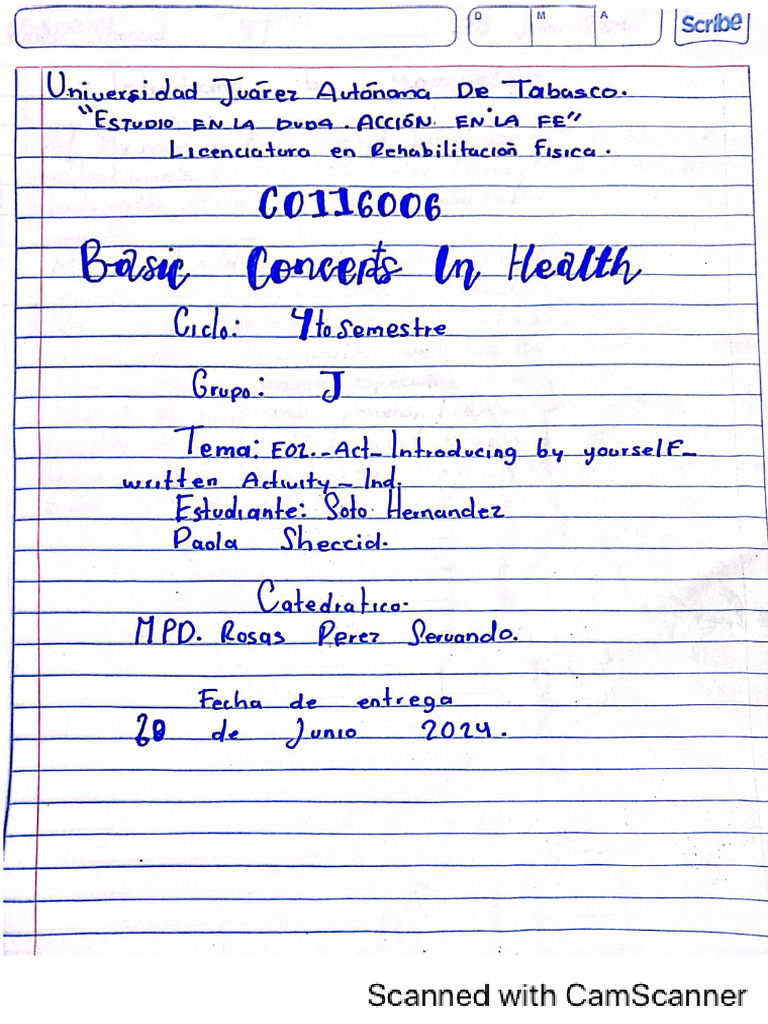 D M A Scribe
Universidad Juárez Autónoma De Tabasco.
"ESTUDIO EN LA DUDA. ACCIÓN EN LA FE"
Licenciatura en Rehabilitación Física.
C0116006
Basic Concepts In Health
Ciclo: 4to semestre
Grupo: J
Tema: E02.-Act-Introducing by yourself-
written Activity-Ind.
Estudiante: Soto Hernandez
Paola Sheccid.
Catedratico.
MPD. Rosas Perez Servando.
Fecha de entrega
de Junio 2024.
Scanned with CamScanner